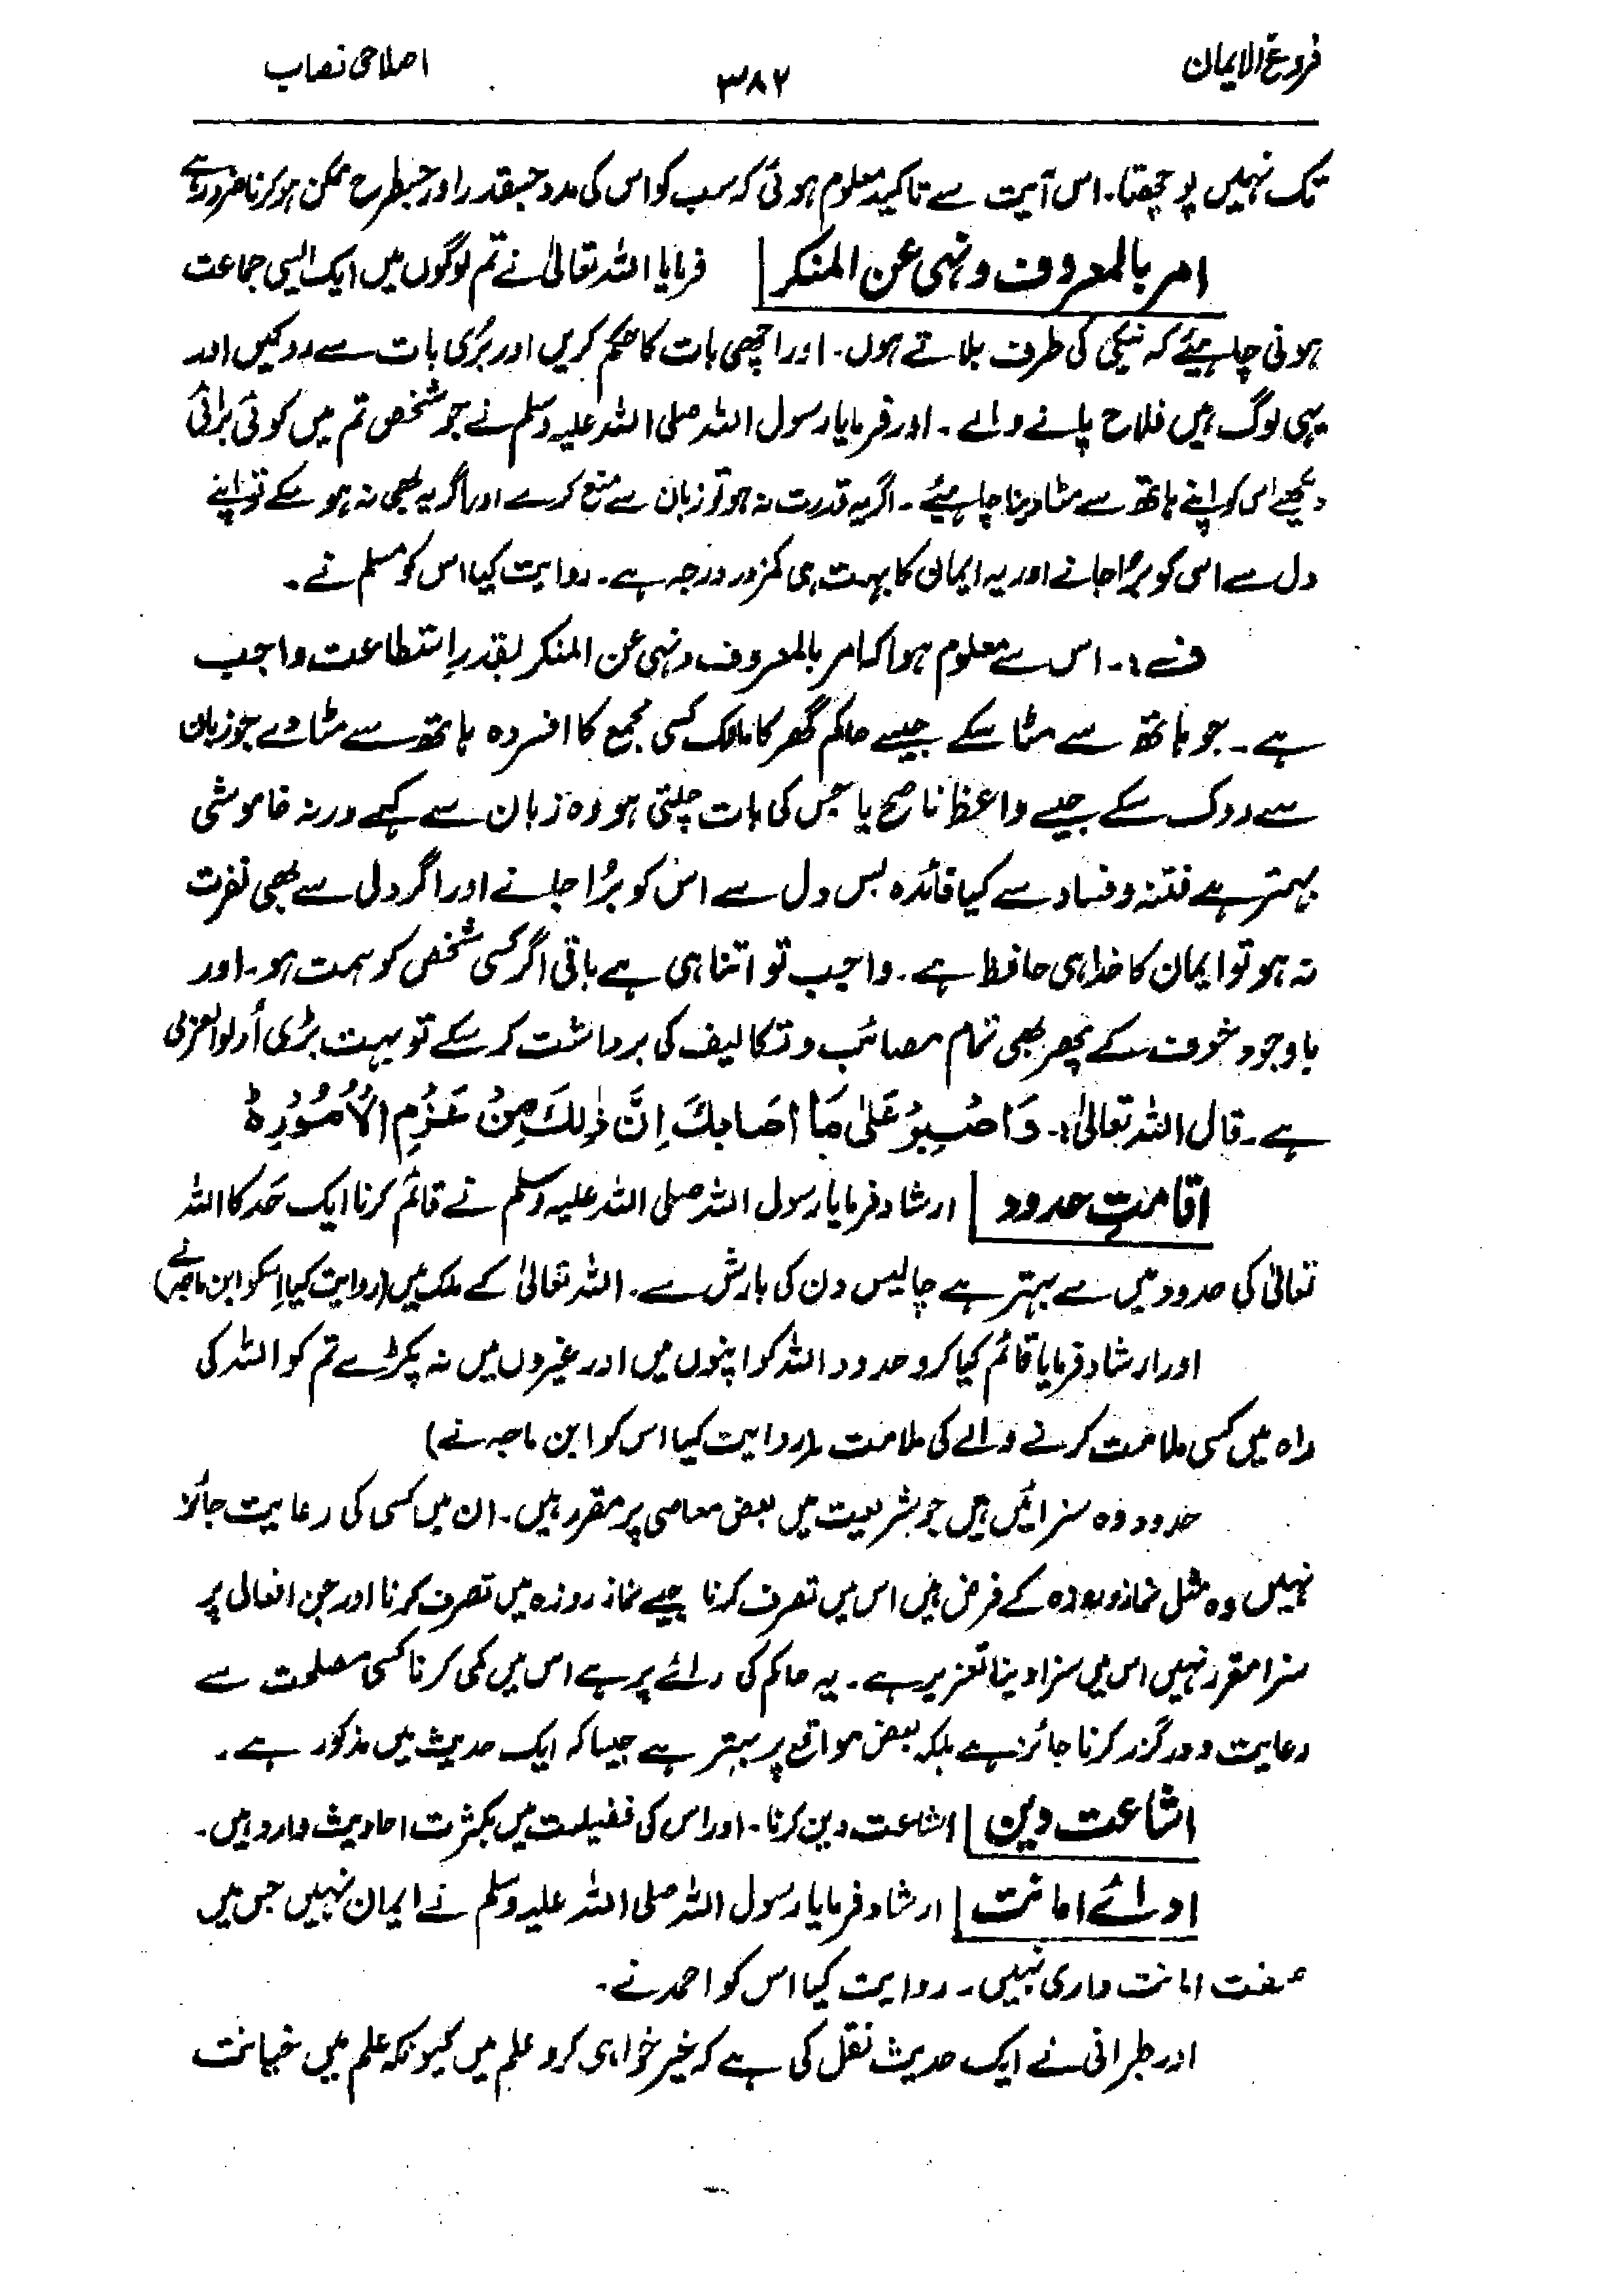 فروع الایمان
۳۸۲
اصلاحی نصاب
تک نہیں پوچھتا۔ اس آیت سے تاکید معلوم ہوئی کہ سب کو اس کی مدد جسقدر اور جسطرح ممکن ہو کرنا ضرور ہے
امر بالمعروف ونہی عن المنکر فرمایا اللہ تعالیٰ نے تم لوگوں میں ایک ایسی جماعت
ہونی چاہیئے کہ نیکی کی طرف بلاتے ہوں۔ اور اچھی بات کا حکم کریں اور بُری بات سے روکیں اور
یہی لوگ ہیں فلاح پانے والے۔ اور فرمایا رسول اللہ صلی اللہ علیہ وسلم نے جو شخص تم میں کوئی برائی
دیکھے اس کو اپنے ہاتھ سے مٹا دینا چاہیئے۔ اگر یہ قدرت نہ ہو تو زبان سے منع کرے اور اگر یہ بھی نہ ہو سکے تو اپنے
دل سے اس کو بُرا جانے اور یہ ایمان کا بہت ہی کمزور درجہ ہے۔ روایت کیا اس کو مسلم نے۔
ف:۔ اس سے معلوم ہوا کہ امر بالمعروف ونہی عن المنکر بقدرِ استطاعت واجب
ہے۔ جو ہاتھ سے مٹا سکے جیسے حاکم گھر کا مالک کسی مجمع کا افسر وہ ہاتھ سے مٹا دے جو زبان
سے روک سکے جیسے واعظ ناصح یا جس کی بات چلتی ہو وہ زبان سے کہے ورنہ خاموشی
بہتر ہے فتنہ و فساد سے کیا فائدہ بس دل سے اس کو بُرا جانے اور اگر دل سے بھی نفرت
نہ ہو تو ایمان کا خدا ہی حافظ ہے۔ واجب تو اتنا ہی ہے باقی اگر کسی شخص کو ہمت ہو۔ اور
باوجود خوف کے پھر بھی تمام مصائب و تکالیف کی برداشت کر سکے تو بہت بڑی اُولوالعزمی
ہے۔ قال اللہ تعالیٰ:۔ وَاصْبِرْ عَلٰی مَا اَصَابَكَ اِنَّ ذٰلِكَ مِنْ عَزْمِ الْاُمُوْرِ ہ
اقامتِ حدود ارشاد فرمایا رسول اللہ صلی اللہ علیہ وسلم نے قائم کرنا ایک حَد کا اللہ
تعالیٰ کی حدود میں سے بہتر ہے چالیس دن کی بارش سے۔ اللہ تعالیٰ کے ملک میں (روایت کیا اِسکو ابن ماجہ نے)
اور ارشاد فرمایا قائم کیا کرو حدود اللہ کو اپنوں میں اور غیروں میں نہ پکڑے تم کو اللہ کی
راہ میں کسی ملامت کرنے والے کی ملامت (روایت کیا اس کو ابن ماجہ نے)
حدود وہ سزائیں ہیں جو شریعت میں بعض معاصی پر مقرر ہیں۔ ان میں کسی کی رعایت جائز
نہیں وہ مثل نماز و روزہ کے فرض ہیں اس میں تصرف کرنا جیسے نماز روزہ میں تصرف کرنا اور جن افعال پر
سزا مقرر نہیں اس میں سزا دینا تعزیر ہے۔ یہ حاکم کی رائے پر ہے اس میں کمی کرنا کسی مصلحت سے
رعایت و درگزر کرنا جائز ہے بلکہ بعض مواقع پر بہتر ہے جیسا کہ ایک حدیث میں مذکور ہے۔
اشاعت دین اشاعت دین کرنا۔ اور اس کی فضیلت میں بکثرت احادیث وارد ہیں۔
ادائے امانت ارشاد فرمایا رسول اللہ صلی اللہ علیہ وسلم نے ایمان نہیں جس میں
صفت امانت داری نہیں۔ روایت کیا اس کو احمد نے۔
اور طبرانی نے ایک حدیث نقل کی ہے کہ خیر خواہی کرو علم میں کیونکہ علم میں خیانت